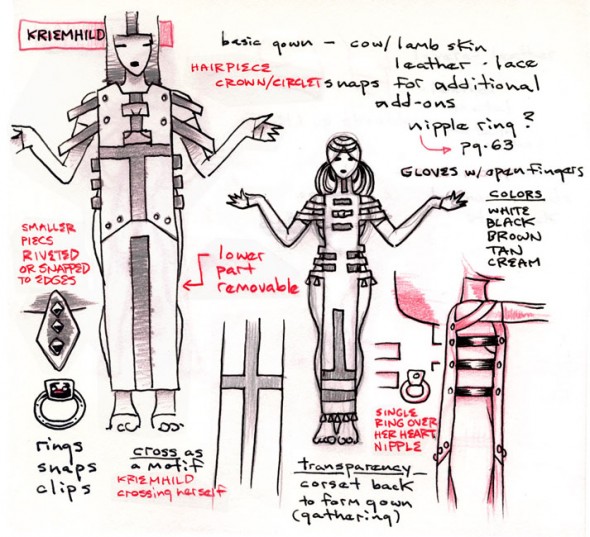 KRIEMHILD
basic gown – cow/lamb skin
leather · lace
HAIRPIECE
CROWN/CIRCLET
snaps for additional
add-ons
nipple ring?
pg. 63
GLOVES w/open fingers
COLORS
WHITE
BLACK
BROWN
TAN
CREAM
SMALLER
PIECS
RIVETED
OR SNAPPED
TO EDGES
lower
part
removable
rings
snaps
clips
cross as
a motif
KRIEMHILD
crossing herself
SINGLE
RING OVER
HER HEART
NIPPLE
transparency
corset back
to form gown
(gathering)